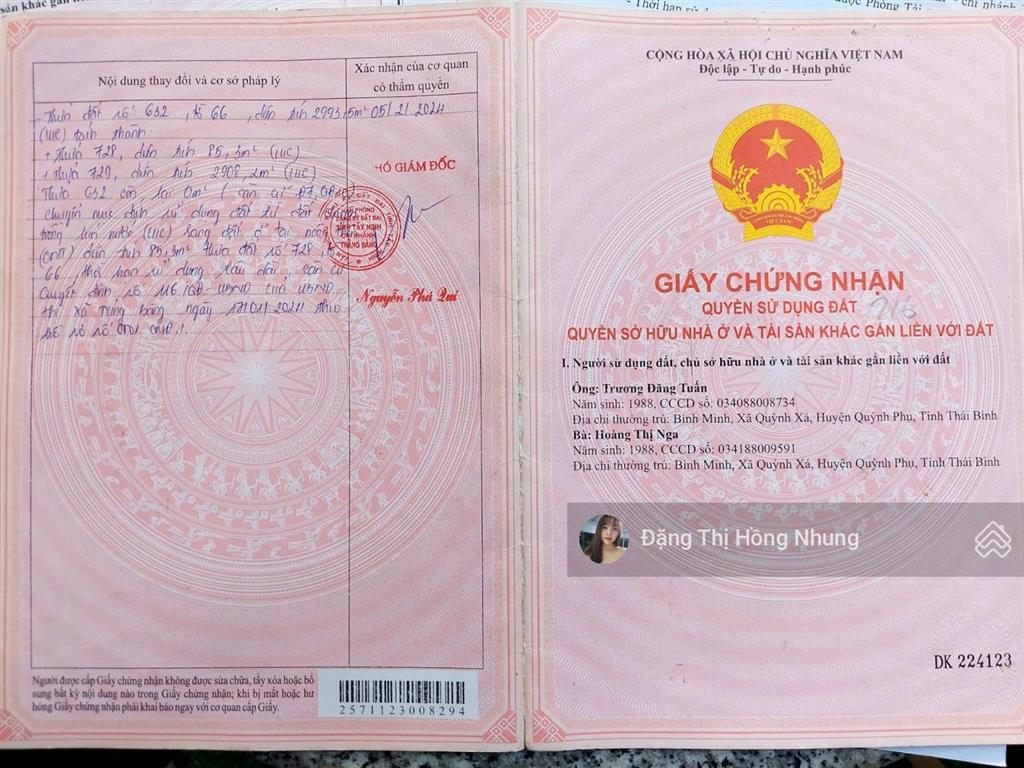 sản khác gắn
- Thời hạn sử
Nội dung thay đổi và cơ sở pháp lý
Xác nhận của cơ quan
có thẩm quyền
- Thửa đất số 632, tờ 66, diện tích 2993,5m² 05/2/2024
(LUC) tách thành:
+ Thửa 728, diện tích 85,3m² (LUC)
+ Thửa 729, diện tích 2908,2m² (LUC)
Thửa 632 còn lại 0m² (căn cứ
chuyển mục đích sử dụng đất từ đất chuyên
trồng lúa nước (LUC) sang đất ở tại nông
(ONT) diện tích 85,3m² thửa đất số 728, tờ
66, thời hạn sử dụng lâu dài, căn cứ
Quyết định số 116/QĐ-UBND của UBND
thị xã Trảng Bàng ngày 17/01/2024 theo
hồ sơ số
HÓ GIÁM ĐỐC
TRẢNG BÀNG
Nguyễn Phú Quí
Người được cấp Giấy chứng nhận không được sửa chữa, tẩy xóa hoặc bổ
sung bất kỳ nội dung nào trong Giấy chứng nhận; khi bị mất hoặc hư
hỏng Giấy chứng nhận phải khai báo ngay với cơ quan cấp Giấy.
2571123008294
CỘNG HÒA XÃ HỘI CHỦ NGHĨA VIỆT NAM
Độc lập - Tự do - Hạnh phúc
GIẤY CHỨNG NHẬN
QUYỀN SỬ DỤNG ĐẤT
QUYỀN SỞ HỮU NHÀ Ở VÀ TÀI SẢN KHÁC GẮN LIỀN VỚI ĐẤT
I. Người sử dụng đất, chủ sở hữu nhà ở và tài sản khác gắn liền với đất
Ông: Trương Đăng Tuấn
Năm sinh: 1988, CCCD số: 034088008734
Địa chỉ thường trú: Bình Minh, Xã Quỳnh Xá, Huyện Quỳnh Phụ, Tỉnh Thái Bình
Bà: Hoàng Thị Nga
Năm sinh: 1988, CCCD số: 034188009591
Địa chỉ thường trú: Bình Minh, Xã Quỳnh Xá, Huyện Quỳnh Phụ, Tỉnh Thái Bình
Đặng Thị Hồng Nhung
DK 224123